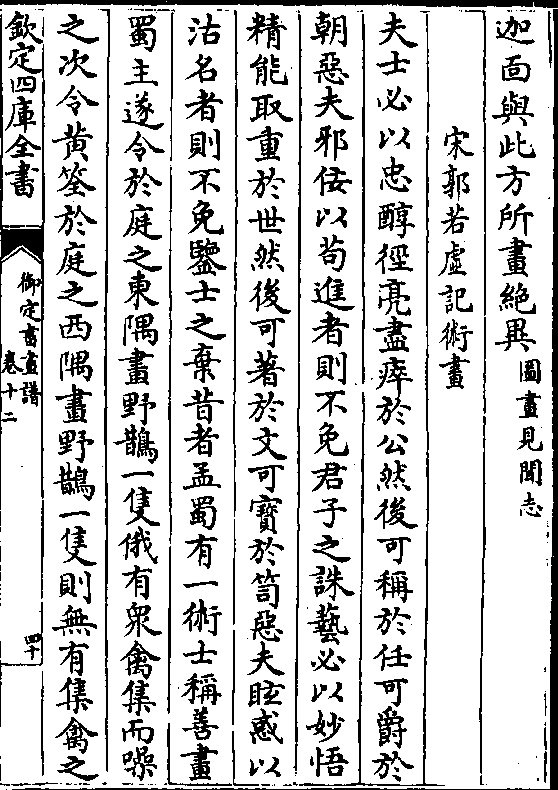 迦面與此方所畫絶異圖畫見聞志
宋郭若虛記術畫
夫士必以忠醇徑亮盡瘁於公然後可稱於任可爵於
朝惡夫邪佞以苟進者則不免君子之誅藝必以妙悟
精能取重於世然後可著於文可寳於笥惡夫眩惑以
沽名者則不免鑒士之棄昔者孟蜀有一術士稱善畫
蜀主遂令於庭之東隅畫野鵲一隻俄有衆禽集而噪
之次令黄筌於庭之西隅畫野鵲一隻則無有集禽之
欽定四庫全書
御定書畫譜
卷十二
四十